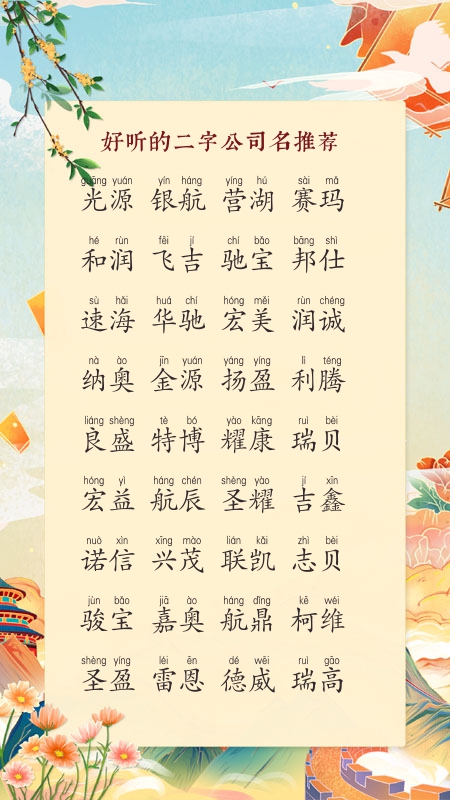 好听的二字公司名推荐
guāng yuán yín háng yíng hú sài mǎ
光源 银航 营湖 赛玛
hé rùn fēi jí chí bǎo bāng shì
和润 飞吉 驰宝 邦仕
sù hǎi huá chí hóng měi rùn chéng
速海 华驰 宏美 润诚
nà ào jīn yuán yáng yíng lì téng
纳奥 金源 扬盈 利腾
liáng shèng tè bó yào kāng ruì bèi
良盛 特博 耀康 瑞贝
hóng yì háng chén shèng yào jí xīn
宏益 航辰 圣耀 吉鑫
nuò xìn xīng mào lián kǎi zhì bèi
诺信 兴茂 联凯 志贝
jùn bǎo jiā ào háng dǐng kē wéi
骏宝 嘉奥 航鼎 柯维
shèng yíng léi ēn dé wēi ruì gāo
圣盈 雷恩 德威 瑞高